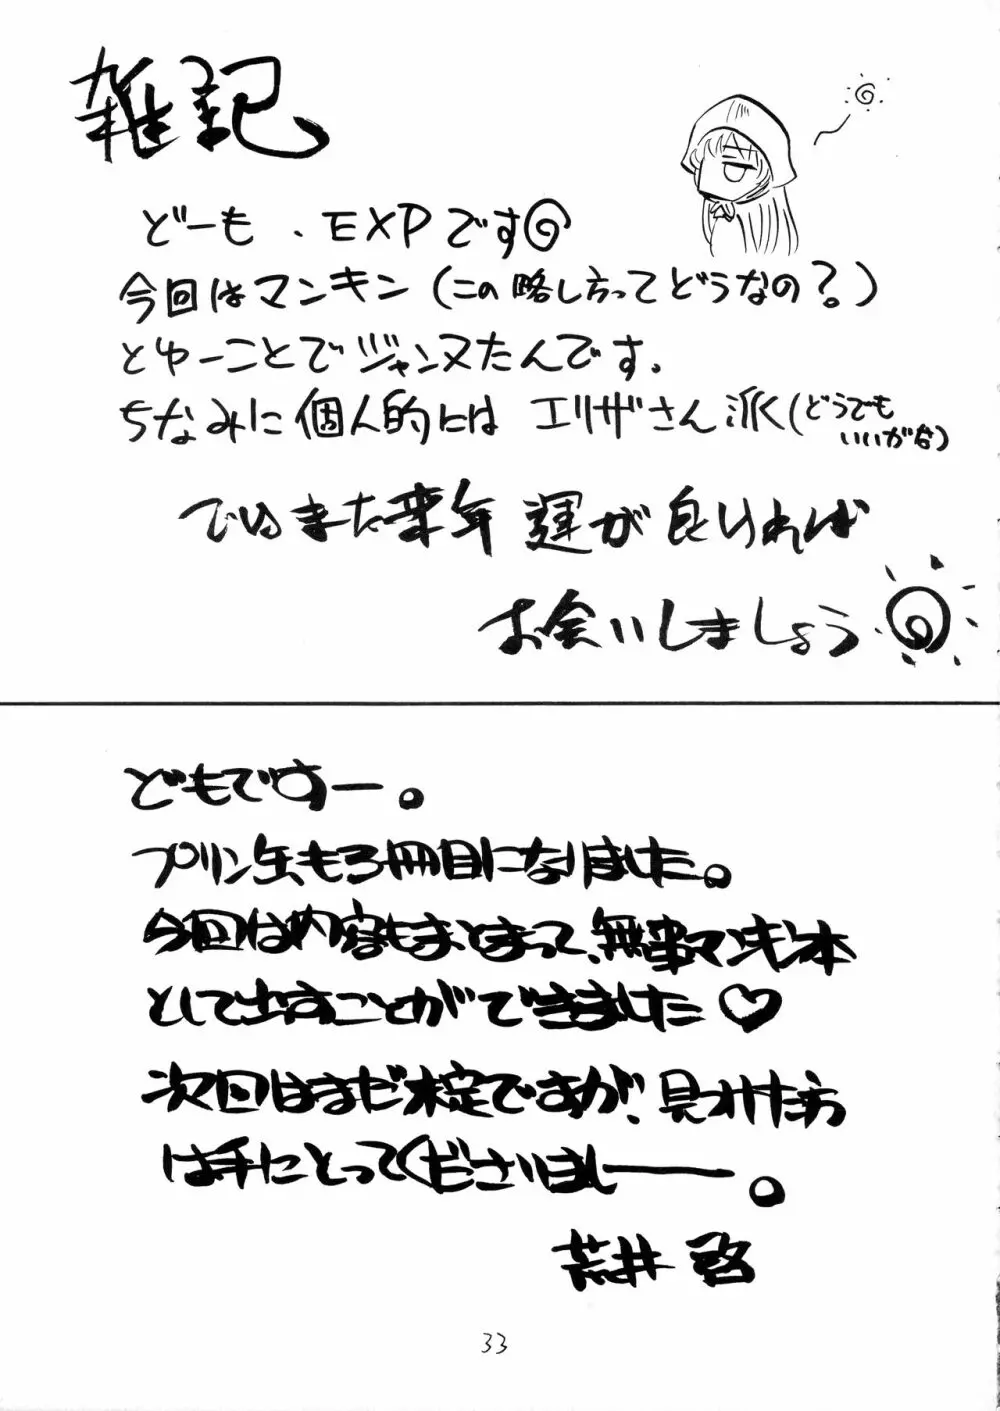 雑記
どーも、EXPです
今回はマンキン(この略し方ってどうなの?)
とゆーことでジャンヌたんです。
ちなみに個人的にはエリザさん派(どうでも
いいがな)
ではまた来年 運が良ければ
お会いしましょう
どもですー。
プリン缶も3冊目になりました。
今回は内容もまとまって、無事マンキン本
として出すことができました♡
次回はまだ未定ですが、見つけた方
は手にとってくださいましー。
荒井 啓
33